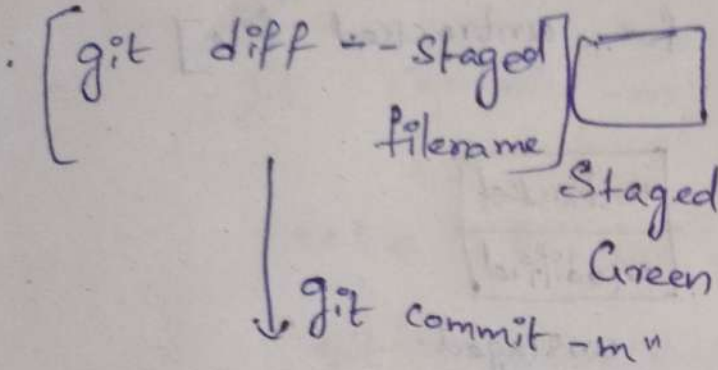 . [git diff --staged
filename]
Staged
Green
git commit -m"